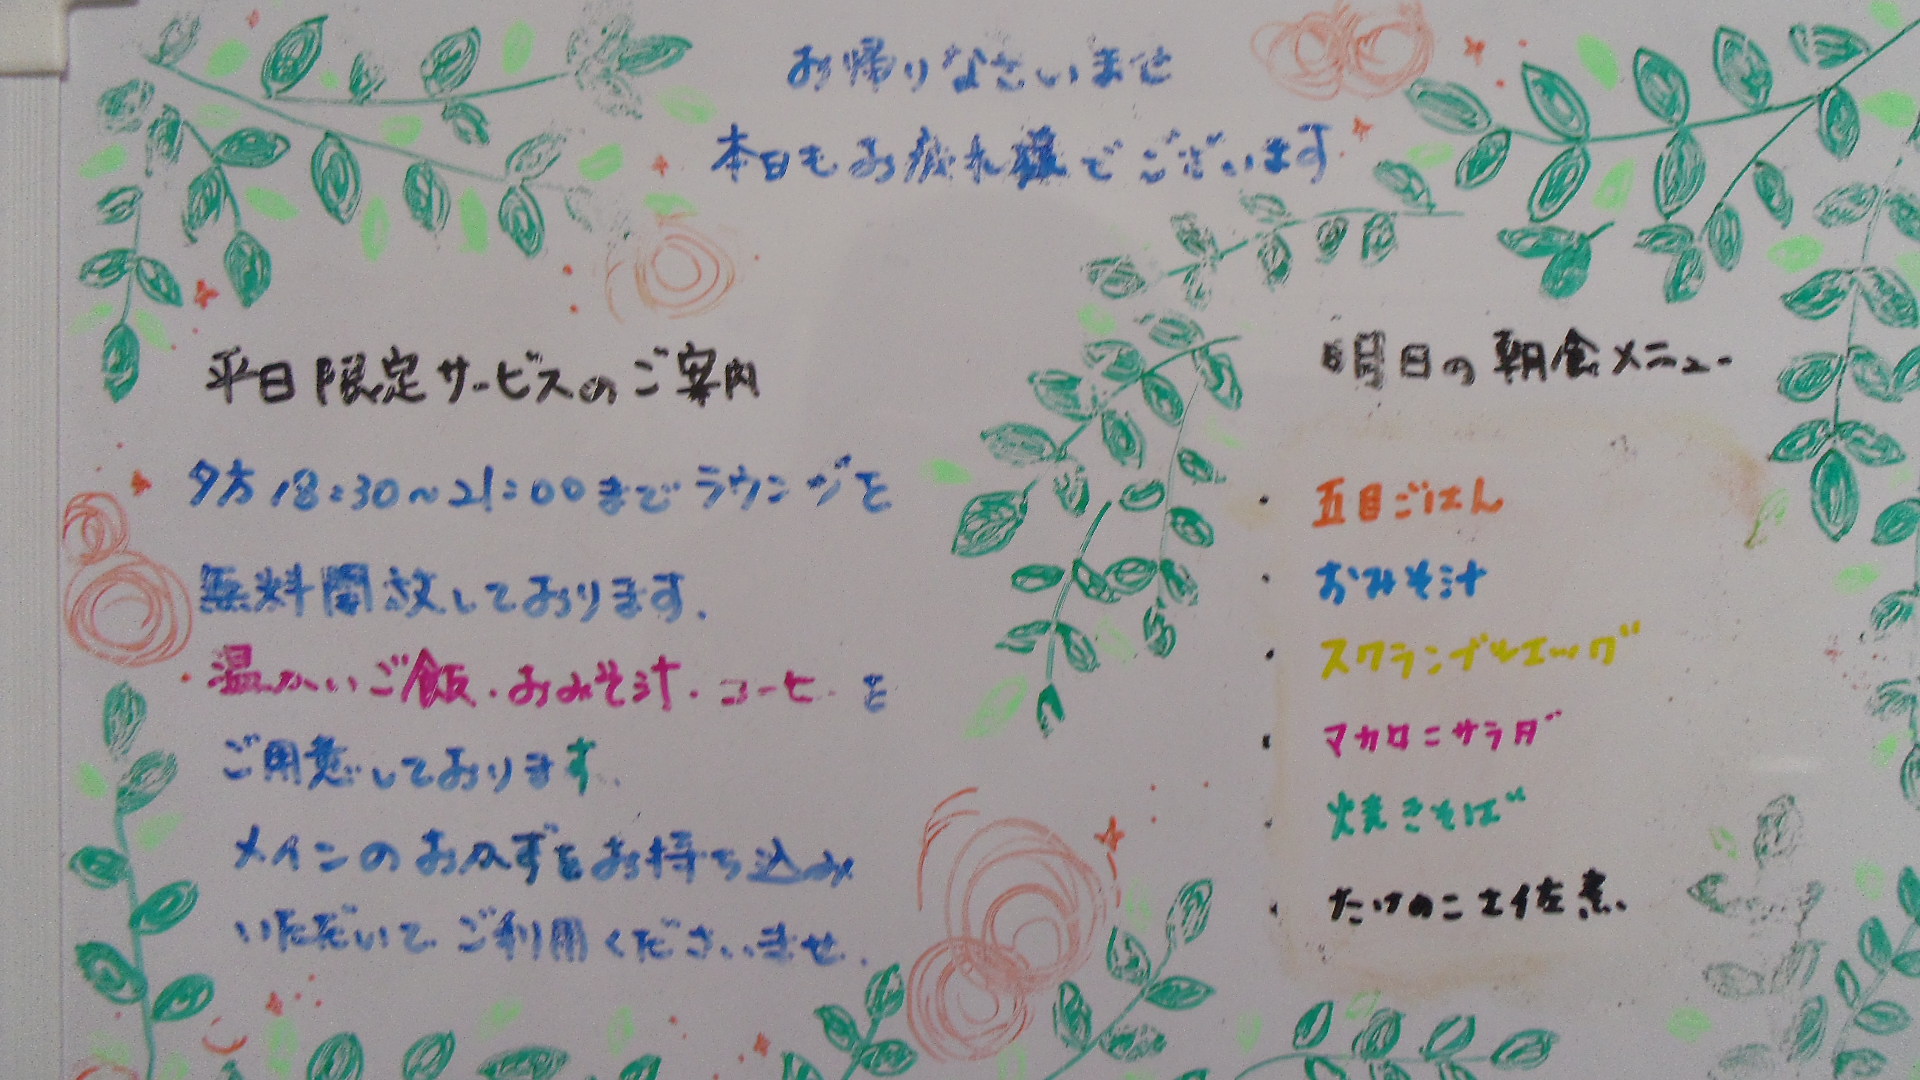 お帰りなさいませ
本日もお疲れ様でございます
平日限定サービスのご案内
夕方18:30～21:00までラウンジを
無料開放しております.
温かいご飯・おみそ汁・コーヒーを
ご用意しております.
メインのおかずをお持ち込み
いただいてご利用くださいませ.
明日の朝食メニュー
・五目ごはん
・おみそ汁
・スクランブルエッグ
・マカロニサラダ
・焼きそば
・たけのこ土佐煮